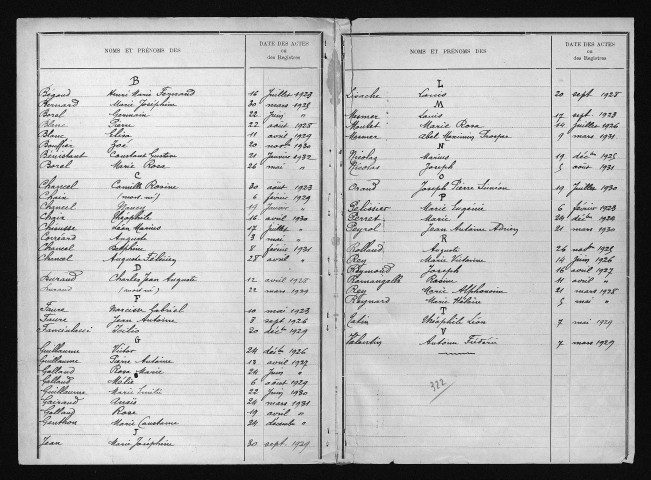 NOMS ET PRÉNOMS DES
DATE DES ACTES
ou
des Registres
B
Bégoud Henri Marie Fernand 16 Juillet 1923
Bernard Marie Joséphine 30 mars 1925
Borel Germain 22 Juin "
Blanc Pierre 22 août 1928
Blanc Elisa 11 avril 1929
Bonffier Zoé 20 novbre 1930
Bénistant Constant Gustave 21 Janvier 1932
Borel Marie Rosa 26 mai "
C
Charcel Camille Rosine 30 août 1923
Chaix (mort né) 6 février 1929
Chancel 19 Janvier
Chaix Théophile 16 avril 1930
Chausse Léon Marius 17 Juillet "
Correard Auguste 3 mai "
Chancel Delphine 2 février 1931
Chancel Auguste Félicien 28 "
D
Durand Charles Jean Auguste 12 avril 1928
Durand (mort né) 22 mars 1929
F
Faure Narcisse Gabriel 10 mai 1923
Faure Jean Antoine 8 sept 1926
Fanciulacci 20 décbre 1929
G
Guillaume Victor 24 décbre 1926
Guillaume Pierre Antoine 13 avril 1929
Galland Rosa Marie 24 Juin "
Galland Mélie 6 août 1929
Guillaume Marie 22 Juin 1930
Gairaud Anaïs 24 mars 1931
Galland Rose 19 avril "
Gauthon Marie Constance 24 décembre "
J
Jean Marie Joséphine 30 sept. 1929
NOMS ET PRÉNOMS DES
DATE DES ACTES
ou
des Registres
L
Livache Louis 20 sept 1928
M
Mesner Louis 17 sept. 1923
Moutet Marie Rosa 14 Juillet 1926
Mesner Abel Maximin Prosper 9 mars 1931
N
Nicolas Marius 19 décbre 1925
Nicolas Joseph 5 août 1931
O
Orand Joseph Pierre Siméon 19 Juillet 1930
P
Pelissier Marie Eugénie 6 février 1923
Perret Marie 20 décbre 1924
Peyrol Jean Antoine Adrien 21 mars 1930
R
Rolland Auguste 26 novbre 1925
Rey Marie Victorine 14 Juin 1926
Reymond Joseph 16 avril 1927
Romangelli Rosine 11 avril "
Rey Marie Alphonsine 21 mars 1928
Reynard Marie Hélène 5 mai "
T
Tatin Théophile Léon 7 mai 1929
V
Valentin Antoine 7 mars 1929
322